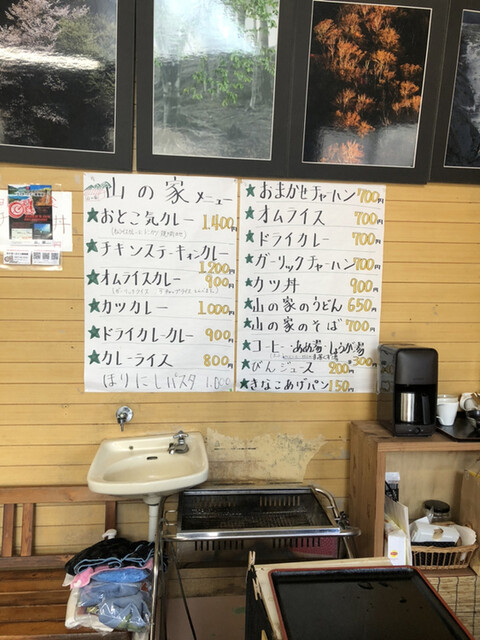 山の家 メニュー
★おとこ気カレー 1,400円
★チキンステーキィンカレー
1,200円
★オムライスカレー 900円
★カツカレー 1,000円
★ドライカレーカレー 900円
★カレーライス 800円
ほりにしパスタ 1,000
★おまかせチャーハン 700円
★オムライス 700円
★ドライカレー 700円
★ガーリックチャーハン 700円
★カツ丼 900円
★山の家のうどん 650円
★山の家のそば 700円
★コーヒー・あめ湯・しょうが湯
300円
★びんジュース 200円
★きなこあげパン 150円